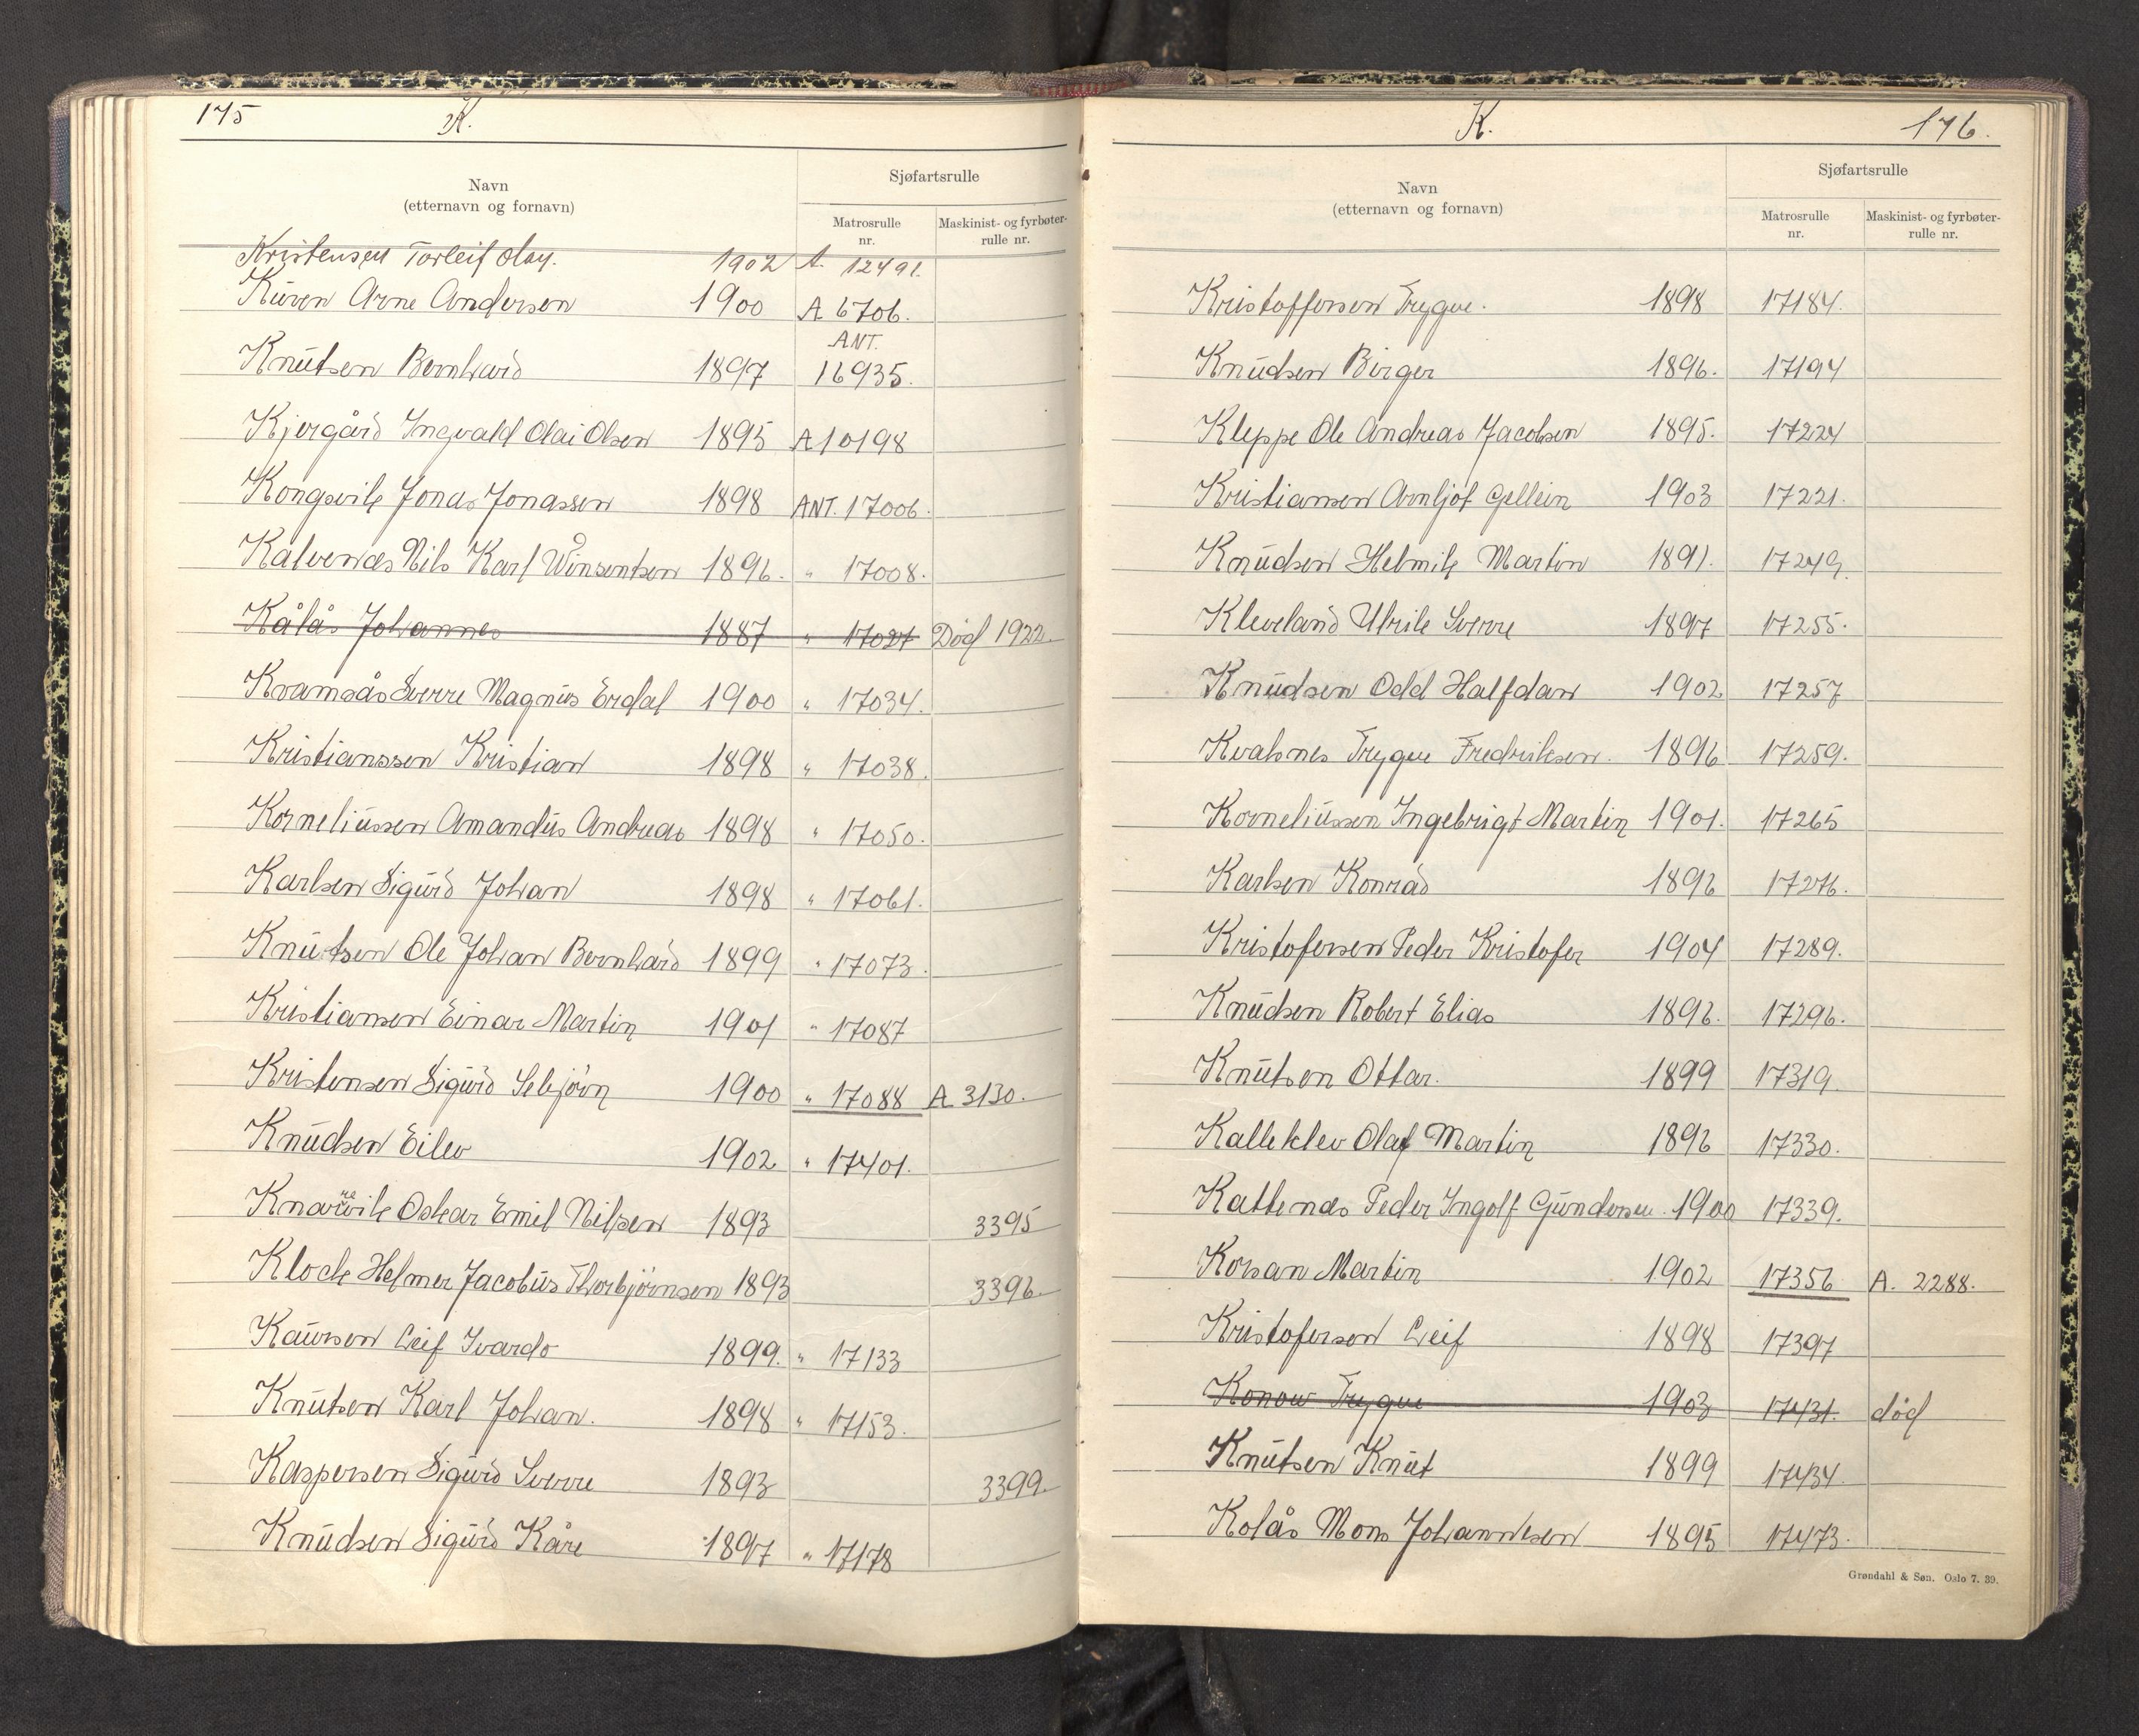 175 K.
Navn
(etternavn og fornavn)
Sjøfartsrulle
Matrosrulle
nr.
Maskinist- og fyrbøter-
rulle nr.
Kristensen Torleif Olay. 1902 A. 12491.
Kuven Arne Andersen 1900 A 6706.
ANT.
Knutsen Bernhard 1897 16935.
Kjergård Ingvald Olai Olsen 1895 A 10198
Kongsvik Jonas Jonassen 1898 ANT. 17006.
Kalvenæs Nils Karl Winsentsen 1896. " 17008.
Kålås Johannes 1887 " 17027 Död 1922.
Kvamsås Sverre Magnus Erdal 1900 " 17034.
Kristianssen Kristian 1898 " 17038.
Korneliussen Amandus Andreas 1898 " 17050.
Karlsen Sigurd Johan 1898 " 17061.
Knutsen Ole Johan Bernhard 1899 " 17073.
Kristiansen Einar Martin 1901 " 17087
Kristensen Sigurd Sebjörn 1900 " 17088 A 3130.
Knudsen Eilev 1902 " 17401.
Knarrevik Oskar Emil Nilsen 1893 3395
Klock Helmer Jacobus Thorbjörnsen 1893 3396.
Kaursen Leif Ivardo 1899. " 17133
Knutsen Karl Johan. 1898 " 17153.
Kaspersen Sigurd Sverre 1893 3399.
Knudsen Sigurd Kåre 1897 " 17178
K. 176.
Navn
(etternavn og fornavn)
Sjøfartsrulle
Matrosrulle
nr.
Maskinist- og fyrbøter-
rulle nr.
Kristoffersen Trygve. 1898 17184.
Knudsen Birger 1896. 17194
Kleppe Ole Andreas Jacobsen 1895. 17224
Kristiansen Arnljot Gellein 1903 17221.
Knudsen Helmik Martin 1891. 17249.
Kleveland Ulrik Sverre 1897 17255.
Knudsen Odd Halfdan 1902 17257
Kvalsnes Trygve Fredriksen. 1896 17259.
Korneliussen Ingebrigt Martin 1901. 17265
Karlsen Konrad 1896 17276.
Kristofersen Peder Kristofer 1904 17289.
Knudsen Robert Elias 1896. 17296.
Knutsen Ottar. 1899 17319.
Kalleklev Olaf Martin 1896 17330.
Kattenæs Peder Ingolf Gundersen. 1900 17339.
Korsan Martin 1902 17356 A. 2288.
Kristofersen Leif 1898 17397
Konow Trygve 1903 17431. död
Knutsen Knut 1899 17434.
Kolås Mons Johannesen 1895 17473.
Grøndahl & Søn. Oslo 7. 39.